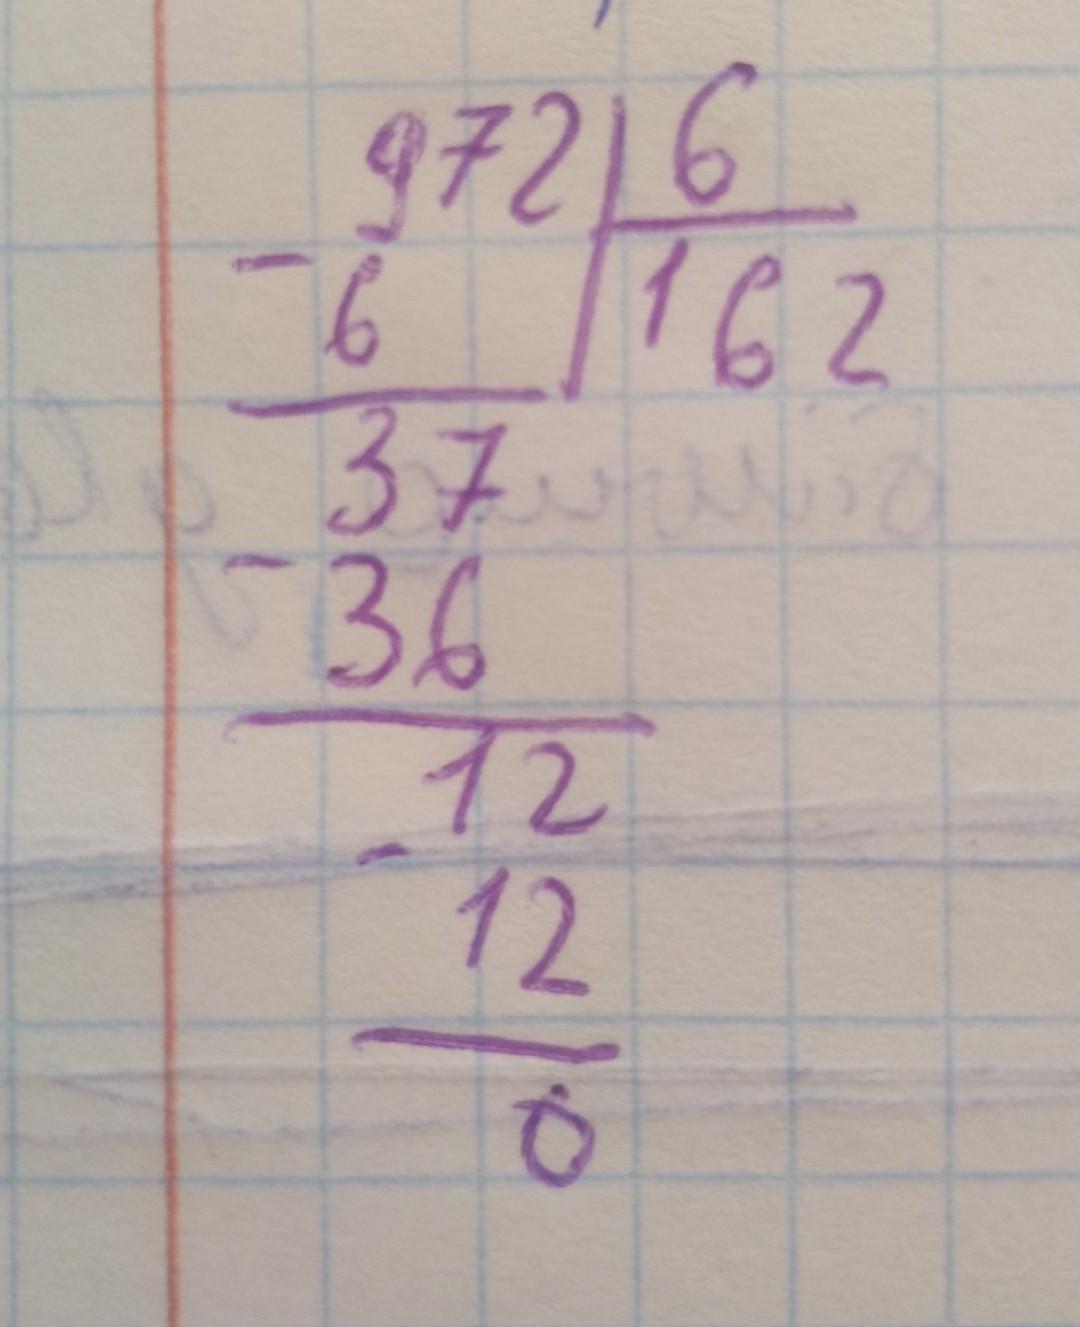 972 6
- 6 162
37
- 36
12
- 12
0